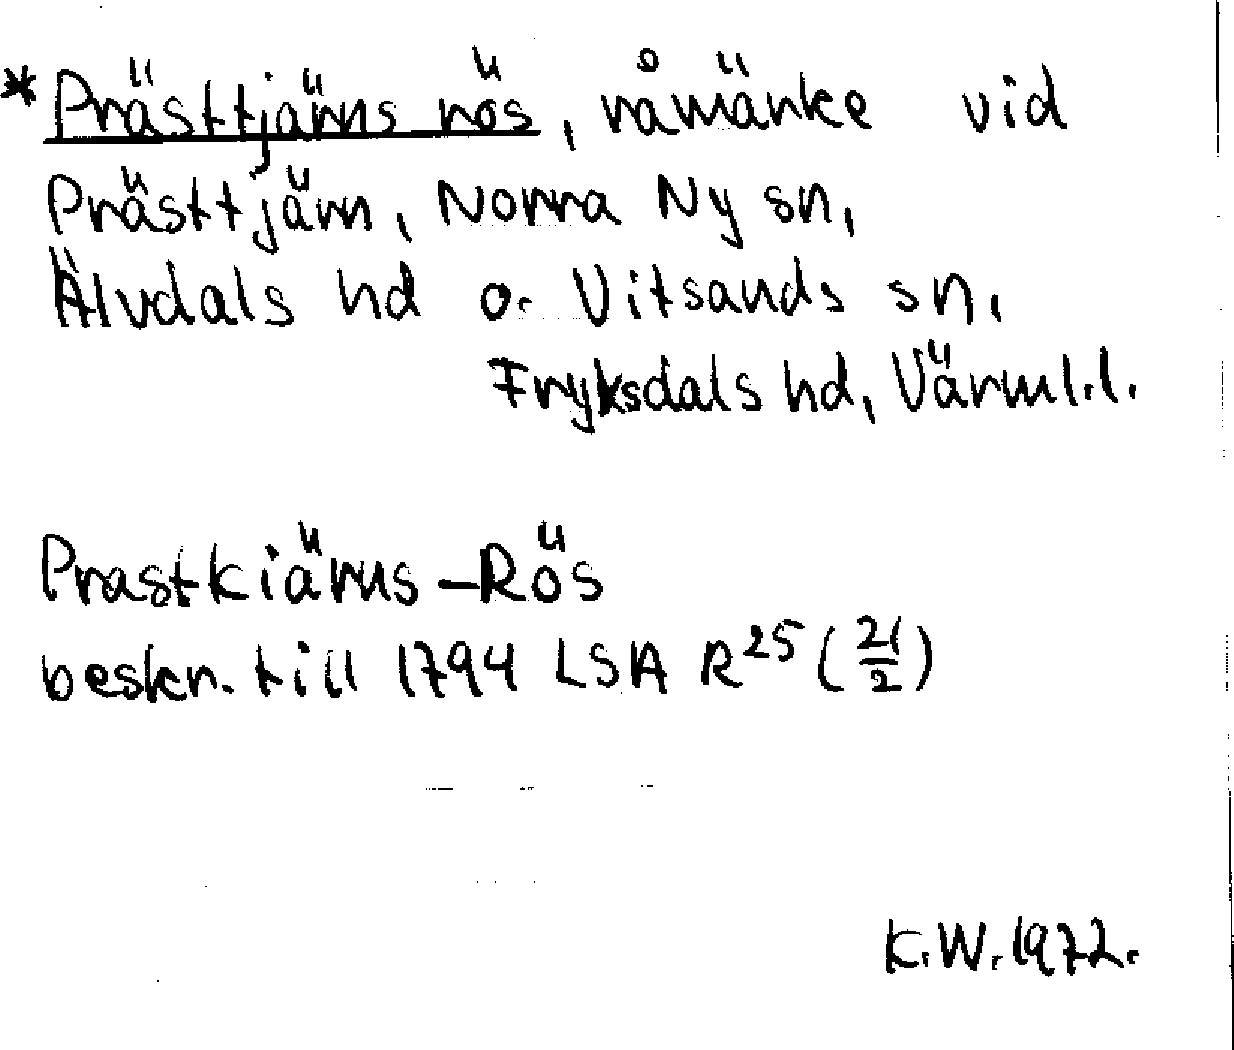 *Prästtjärns rös, råmärke vid
Prästtjärn, Norra Ny sn,
Älvdals hd o. Vitsands sn,
Fryksdals hd, Värml.l.
Prastkiärns-Rös
beskr. till 1794 LSA R25 (21/2)
K.W. 1972.